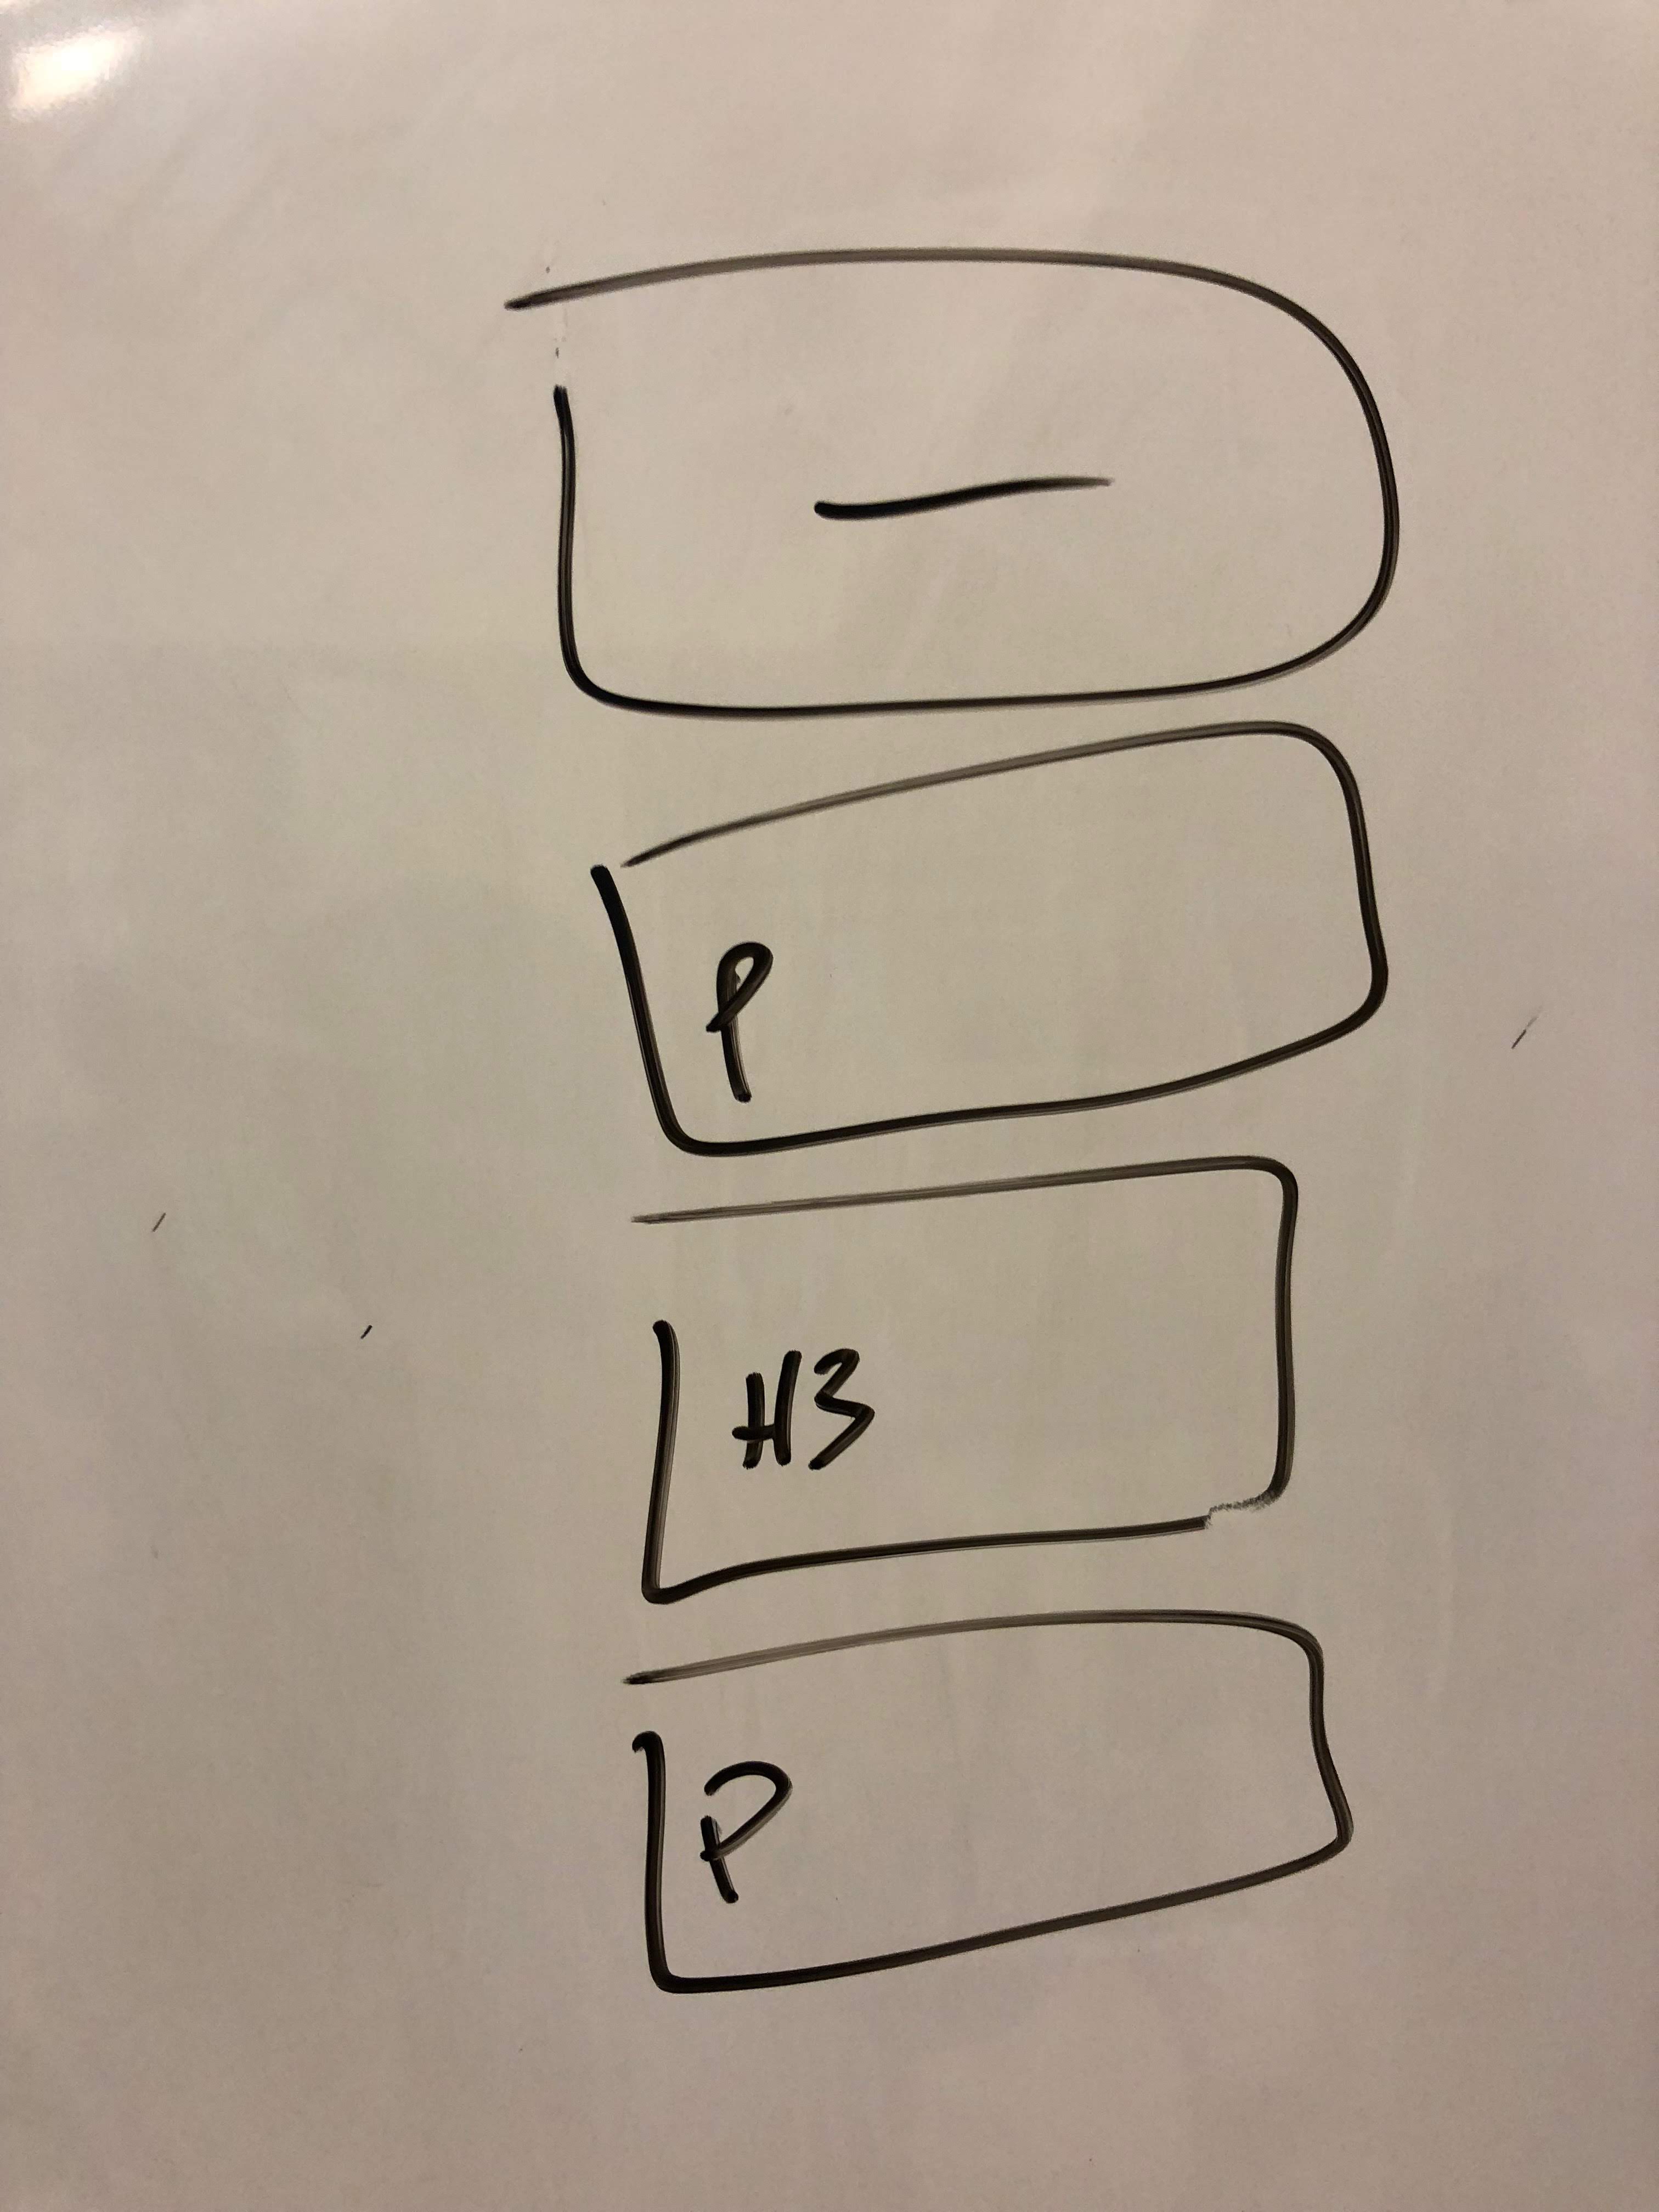 P
H3
P